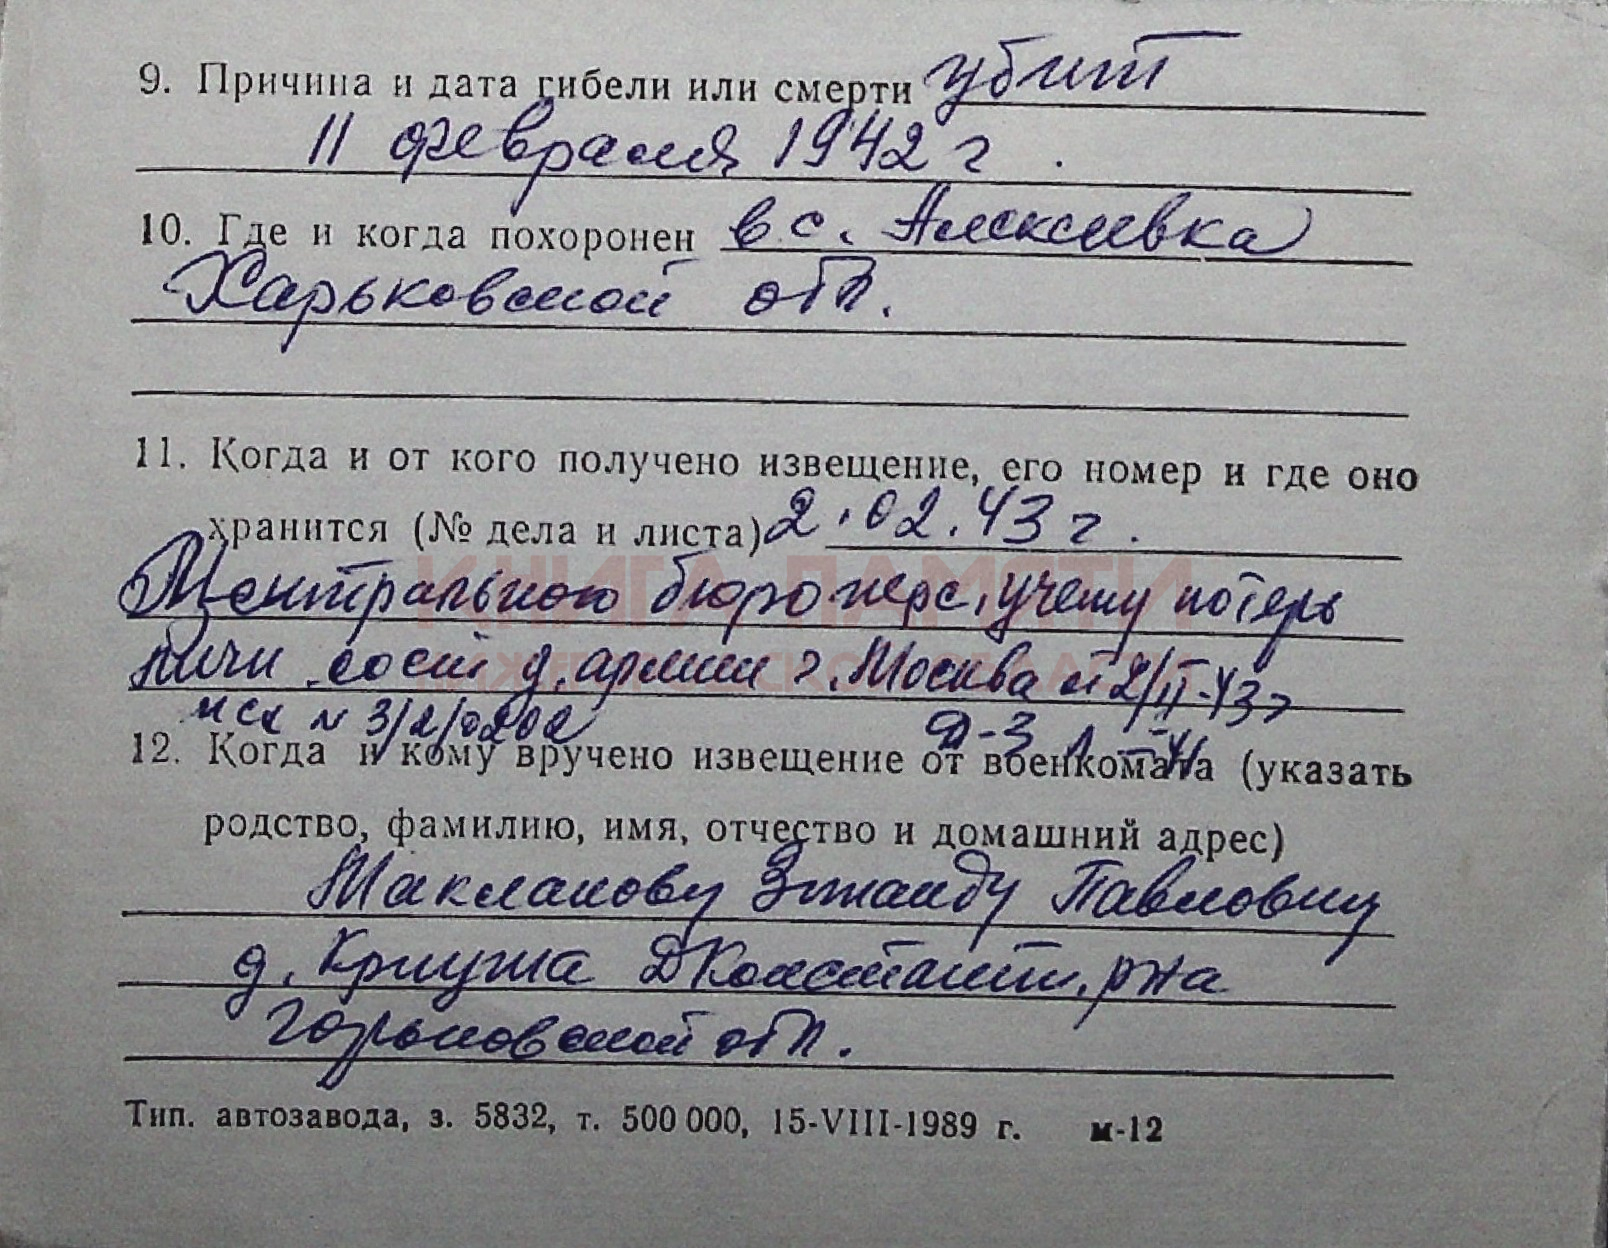 9. Причина и дата гибели или смерти убит
11 февраля 1942 г.
10. Где и когда похоронен в с. Алексеевка
Харьковской обл.
11. Когда и от кого получено извещение, его номер и где оно
хранится (№ дела и листа) 2.02.43 г.
Центрального бюро перс. учету потерь
личн. сост. д. армии г. Москва от 2/II-43 г
исх № 3/2/0202 Д-3 Л
12. Когда и кому вручено извещение от военкомата (указать
родство, фамилию, имя, отчество и домашний адрес)
Маклакову Павловну
д. Криуша ДКонстант. р-на
Горьковской обл.
Тип. автозавода, з. 5832, т. 500 000, 15-VIII-1989 г. м-12
КНИГА ПАМЯТИ
НИЖЕГОРОДСКОЙ ОБЛАСТИ